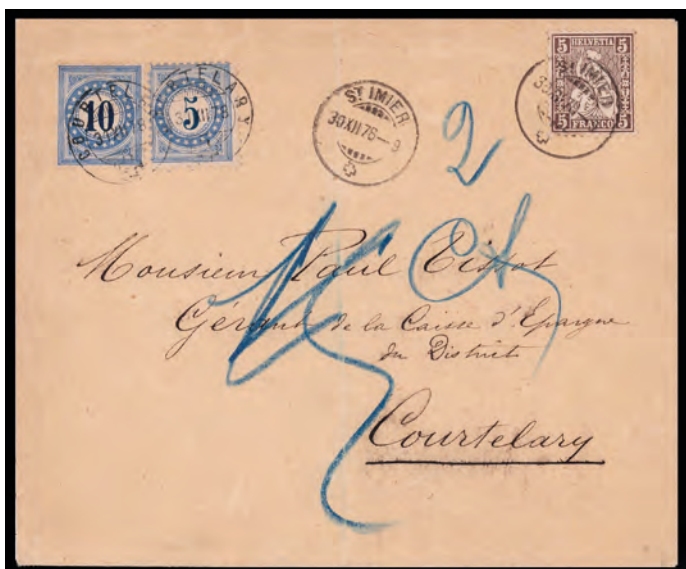 10
5
COURTELARY
COURTELARY
ST IMIER
30XII78–9
2
5 HELVETIA 5
ST IMIER
5 FRANCO 5
Monsieur Paul Tissot
Gérant de la Caisse d'Epargne
du District
Courtelary
15 Ct